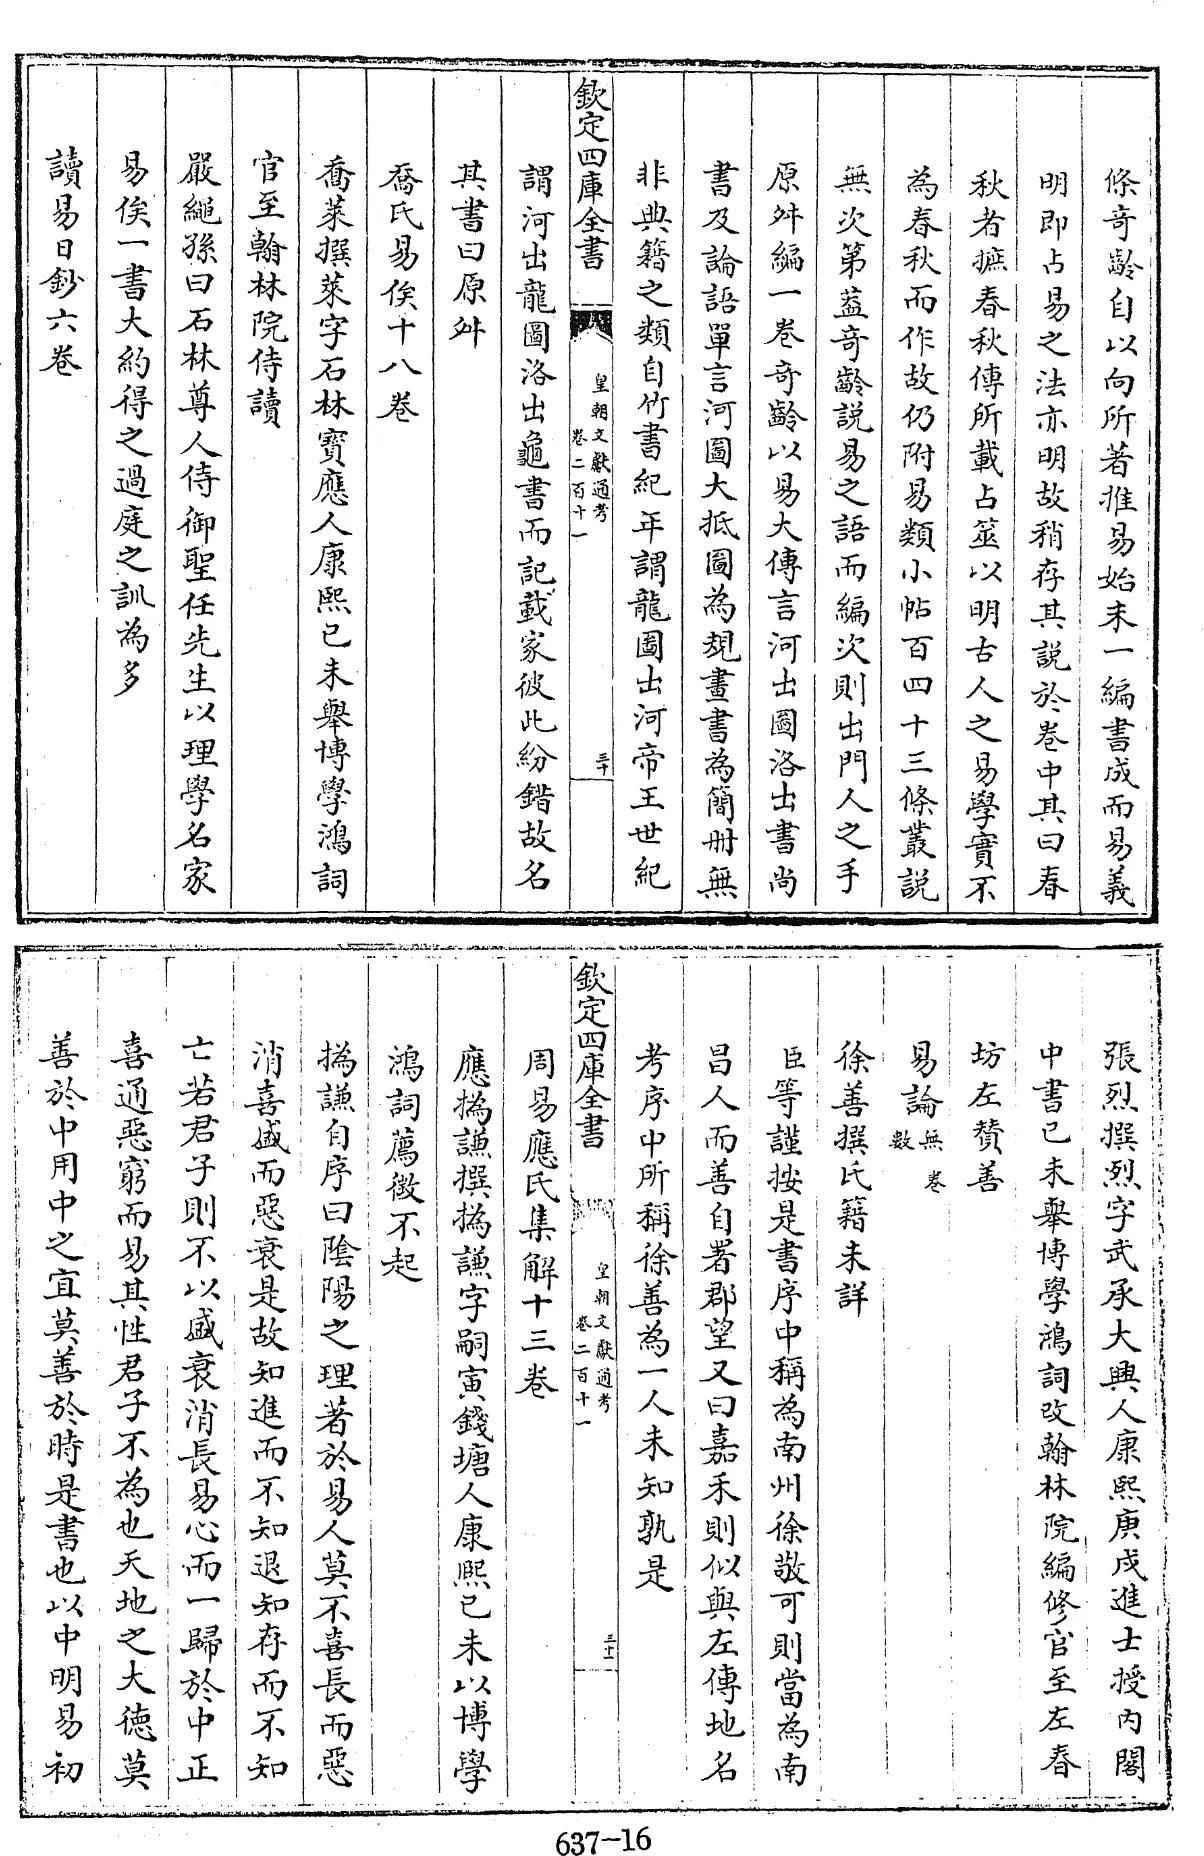 條奇齡自以向所著推易始末一編書成而易義
明即占易之法亦明故稍存其説於卷中其曰春
秋者摭春秋傳所載占筮以明古人之易學實不
為春秋而作故仍附易類小帖百四十三條叢説
無次第葢奇齡説易之語而編次則出門人之手
原舛編一卷奇齡以易大傳言河出圖洛出書尚
書及論語單言河圖大抵圖為規畫書為簡冊無
非典籍之類自竹書紀年謂龍圖出河帝王世紀
欽定四庫全書
皇朝文獻通考
卷二百十一
三十
謂河出龍圖洛出龜書而記載家彼此紛錯故名
其書曰原舛
喬氏易俟十八卷
喬萊撰萊字石林寶應人康熙己未舉博學鴻詞
官至翰林院侍讀
嚴繩孫曰石林尊人侍御聖任先生以理學名家
易俟一書大約得之過庭之訓為多
讀易日鈔六卷
張烈撰烈字武承大興人康熙庚戌進士授内閣
中書己未舉博學鴻詞改翰林院編修官至左春
坊左贊善
易論無卷數
徐善撰氏籍未詳
臣等謹按是書序中稱為南州徐敬可則當為南
昌人而善自署郡望又曰嘉禾則似與左傳地名
考序中所稱徐善為一人未知孰是
欽定四庫全書
皇朝文獻通考
卷二百十一
三十一
周易應氏集解十三卷
應撝謙撰撝謙字嗣寅錢塘人康熙己未以博學
鴻詞薦徵不起
撝謙自序曰陰陽之理著於易人莫不喜長而惡
消喜盛而惡衰是故知進而不知退知存而不知
亡若君子則不以盛衰消長易心而一歸於中正
喜通惡窮而易其性君子不為也天地之大德莫
善於中用中之宜莫善於時是書也以中明易初
637-16